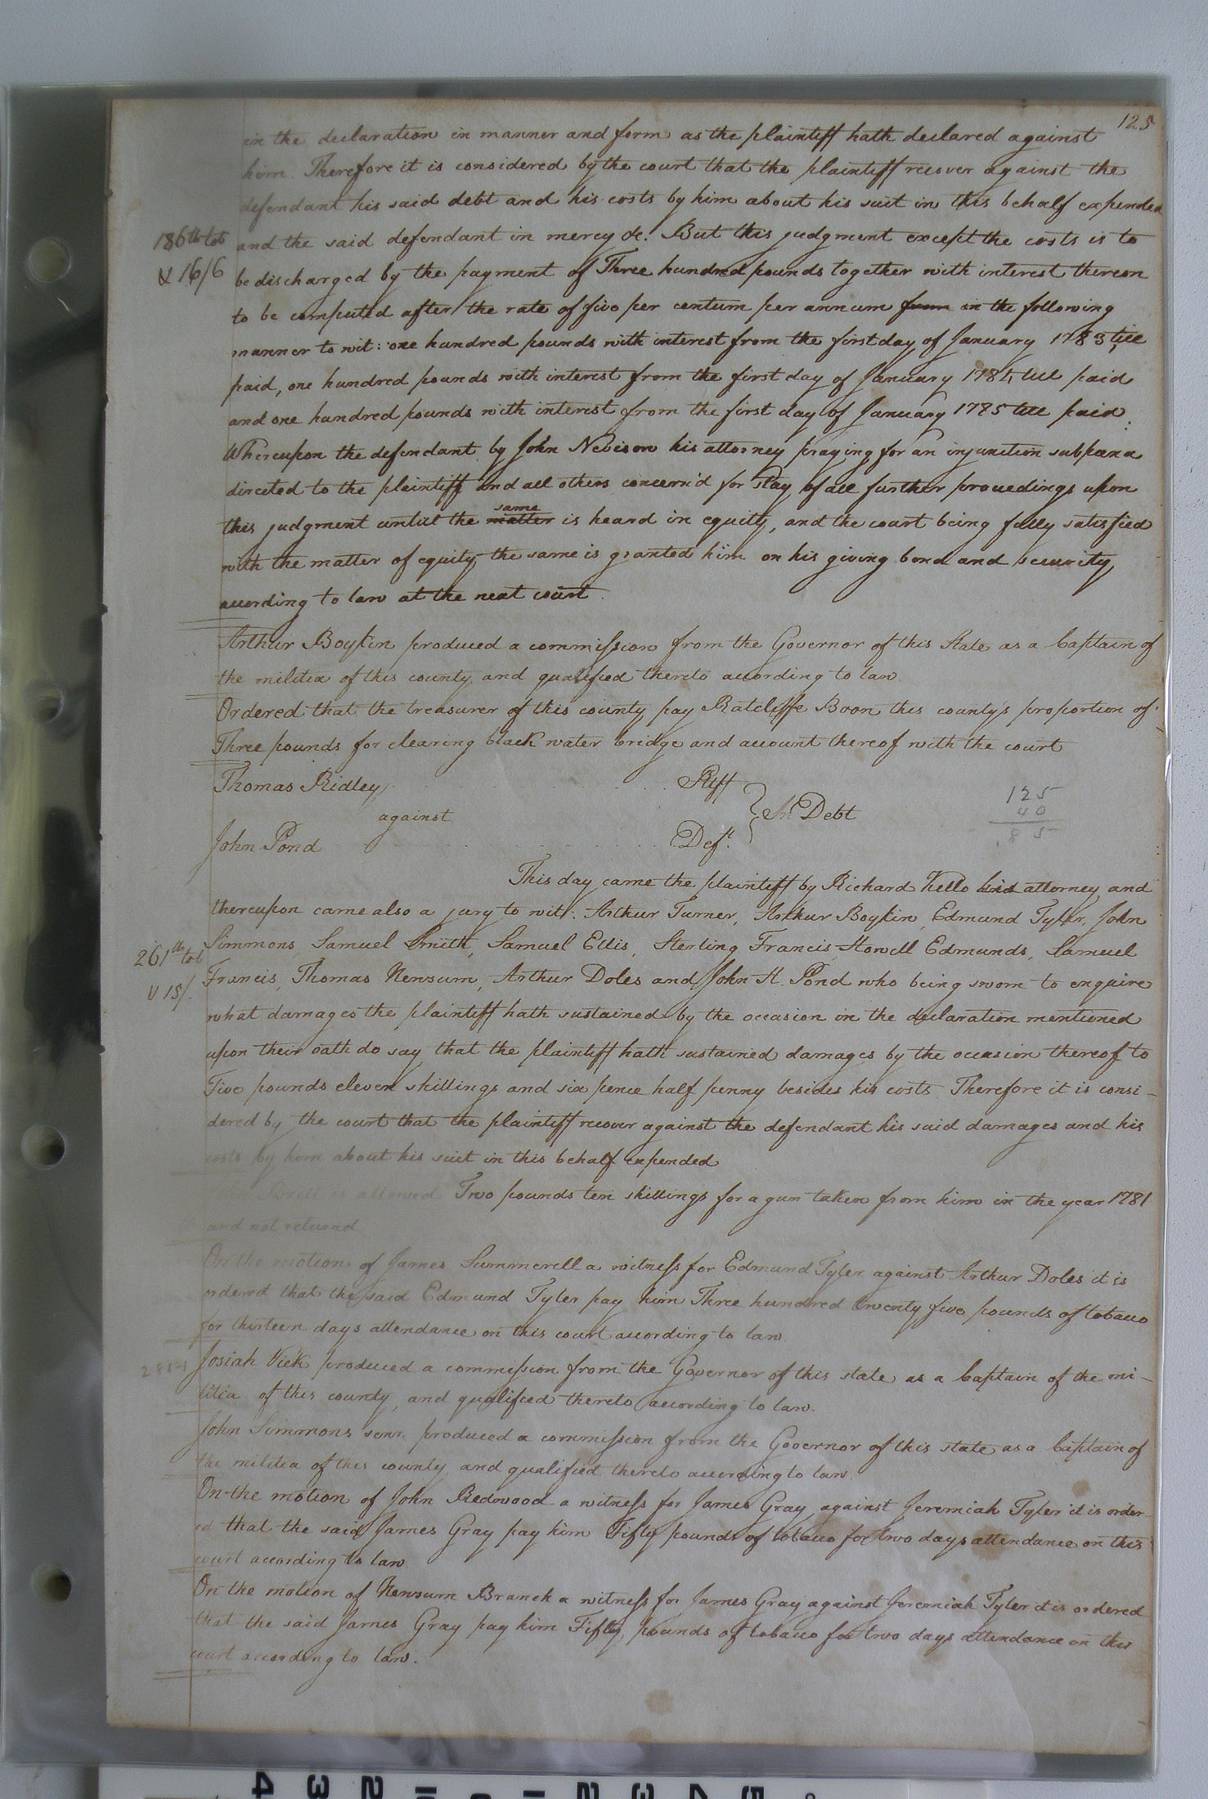 125
in the declaration in manner and form as the plaintiff hath declared against
him. Therefore it is considered by the court that the plaintiff recover against the
defendant his said debt and his costs by him about his suit in this behalf expended
186 lb tob
& 16/6
and the said defendant in mercy &c. But this judgment except the costs is to
be discharged by the payment of Three hundred pounds together with interest thereon
to be computed after the rate of five per centum per annum from in the following
manner to wit: one hundred pounds with interest from the first day of January 1783 till
paid, one hundred pounds with interest from the first day of January 1784 till paid
and one hundred pounds with interest from the first day of January 1785 till paid.
Whereupon the defendant by John Nevison his attorney praying for an injunction subpœna
directed to the plaintiff and all others concern'd for stay of all further proceedings upon
this judgment until the matter same is heard in equity, and the court being fully satisfied
with the matter of equity the same is granted him on his giving bond and security
according to law at the next court.
Arthur Boykin produced a commission from the Governor of this State as a Captain of
the militia of this county and qualified thereto according to law
Ordered that the treasurer of this county pay Ratcliffe Boon this county's proportion of
Three pounds for clearing black water bridge and account thereof with the court
Thomas Ridley Pltff
against In Debt
John Pond Deft.
125
40
85
This day came the plaintiff by Richard Kello his attorney and
thereupon came also a jury to wit: Arthur Turner, Arthur Boykin, Edmund Tyler, John
261 lb tob
& 15/.
Simmons, Samuel Smith, Samuel Ellis, Sterling Francis, Howell Edmunds, Samuel
Francis, Thomas Newsum, Arthur Doles and John H. Pond who being sworn to enquire
what damages the plaintiff hath sustained by the occasion in the declaration mentioned
upon their oath do say that the plaintiff hath sustained damages by the occasion thereof to
Five pounds eleven shillings and six pence half penny besides his costs. Therefore it is consi-
dered by the court that the plaintiff recover against the defendant his said damages and his
costs by him about his suit in this behalf expended
is allowed Two pounds ten shillings for a gun taken from him in the year 1781
and not returned
On the motion of James Summerell a witness for Edmund Tyler against Arthur Doles it is
ordered that the said Edmund Tyler pay him Three hundred twenty five pounds of tobacco
for thirteen days attendance on this court according to law.
Josiah Vick produced a commission from the Governor of this state as a Captain of the mi-
litia of this county, and qualified thereto according to law.
John Simmons senr. produced a commission from the Governor of this state as a Captain of
the militia of this county and qualified thereto according to law.
On the motion of John Redwood a witness for James Gray against Jeremiah Tyler it is order-
ed that the said James Gray pay him Fifty pounds of tobacco for two days attendance on this
court according to law
On the motion of Newsum Branch a witness for James Gray against Jeremiah Tyler it is ordered
that the said James Gray pay him Fifty pounds of tobacco for two days attendance on this
court according to law.